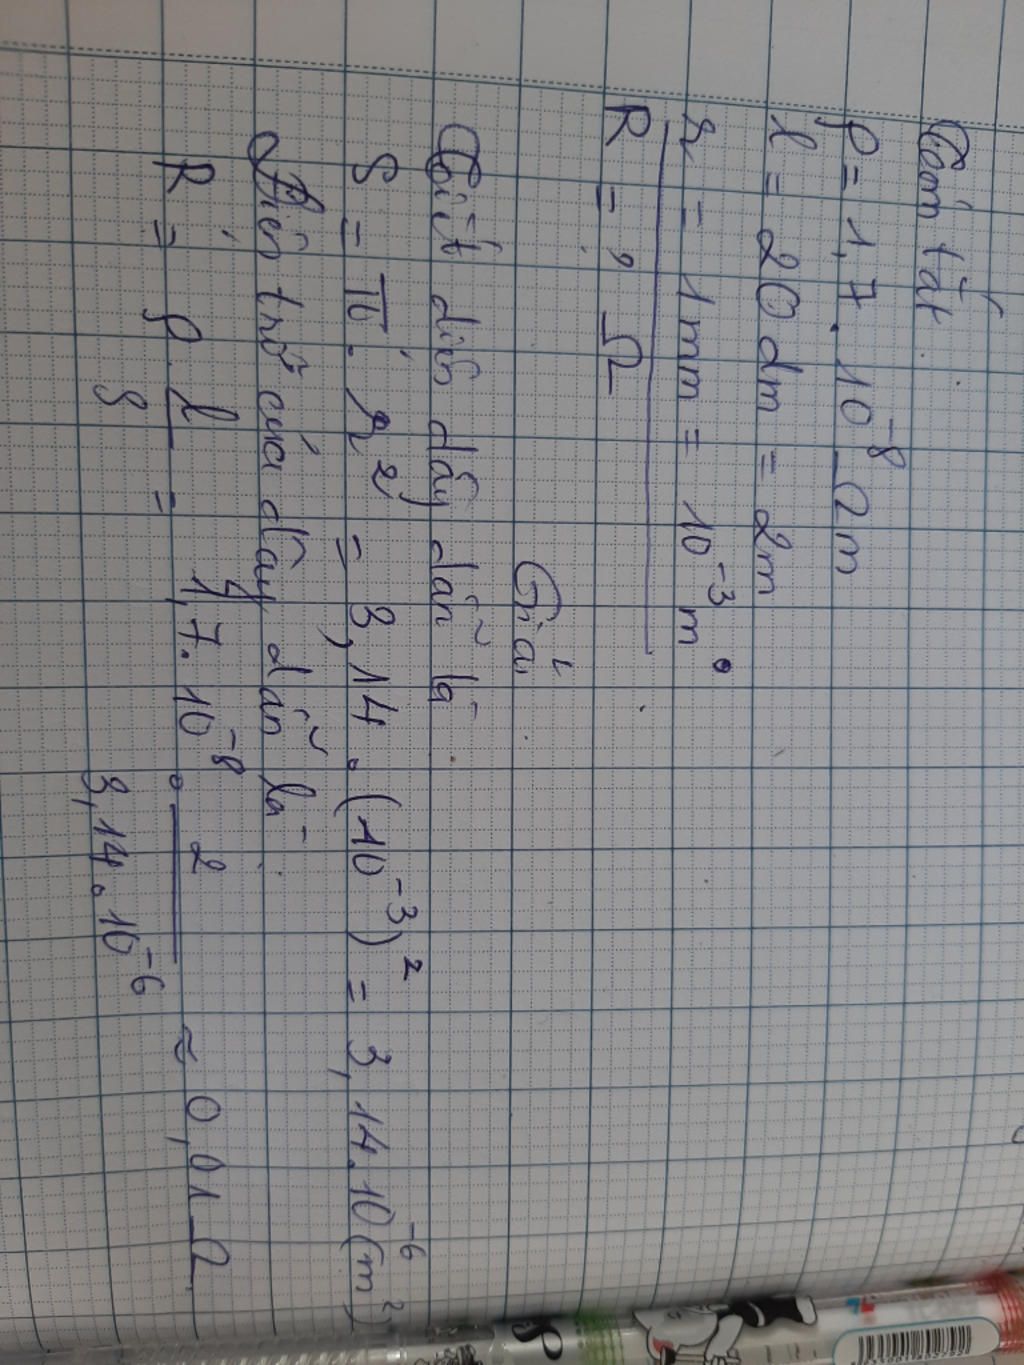 Tóm tắt
ρ = 1,7 . 10⁻⁸ Ωm
l = 20 dm = 2m
r = 1mm = 10⁻³ m.
R = ? Ω
Giải
Tiết diện dây dẫn là
S = π . r² = 3,14 . (10⁻³)² = 3,14 . 10⁻⁶ (m²)
Điện trở của dây dẫn là
R = ρ . l/S = 1,7 . 10⁻⁸ . 2/(3,14 . 10⁻⁶) ≈ 0,01 Ω